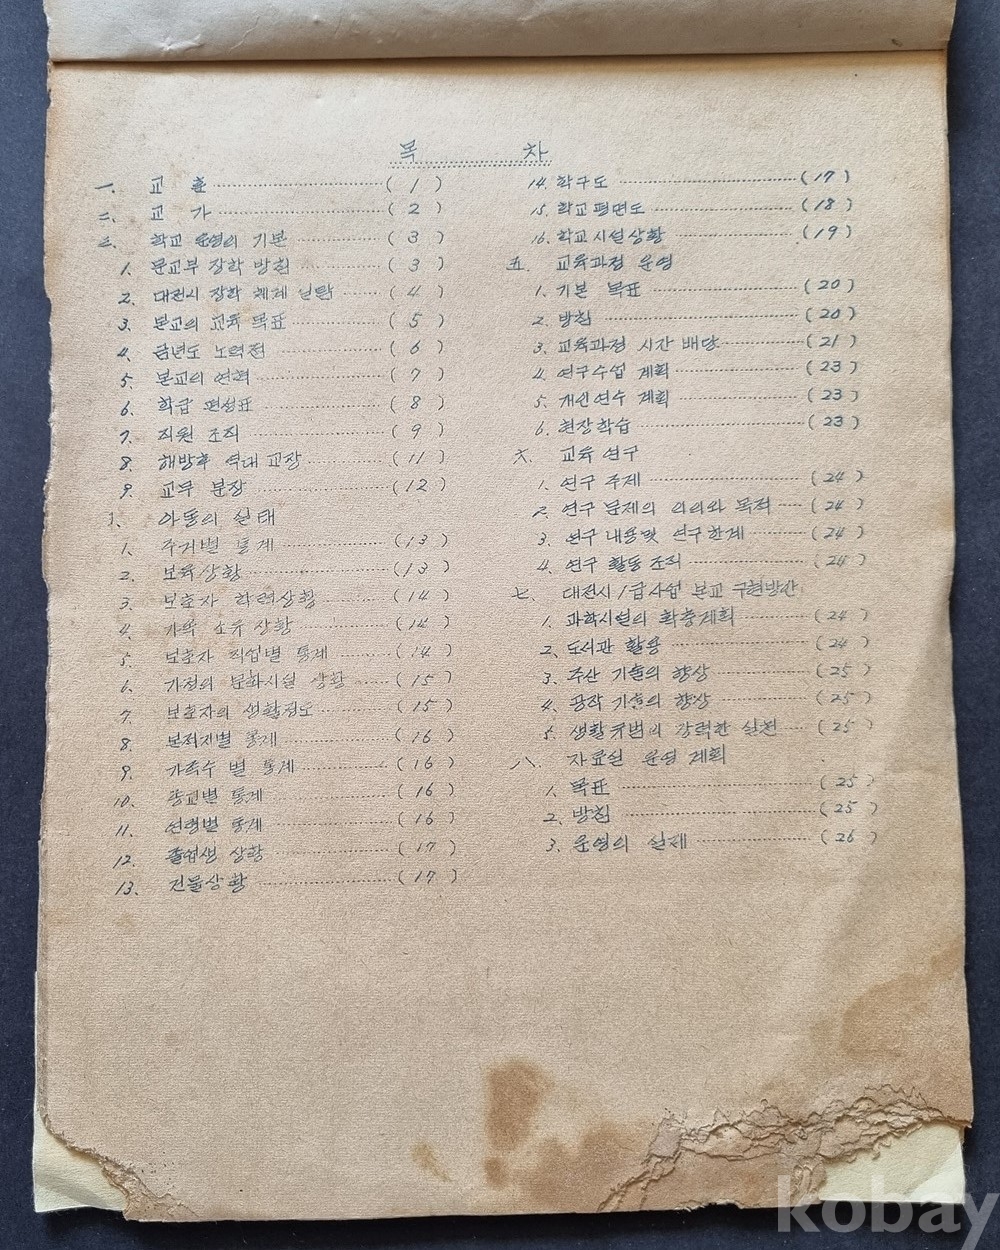 목 차
一. 교 훈 (1)
二. 교 가 (2)
三. 학교 운영의 기본 (3)
1. 문교부 장학 방침 (3)
2. 대전시 장학 체계 일람 (4)
3. 본교의 교육 목표 (5)
4. 금년도 노력점 (6)
5. 본교의 연혁 (7)
6. 학급 편성표 (8)
7. 직원 조직 (9)
8. 해방후 역대 교장 (11)
9. 교무 분장 (12)
아동의 실태
1. 주거별 통계 (13)
2. 보육상황 (13)
3. 보호자 학력상황 (14)
4. 가축 소유 상황 (14)
5. 보호자 직업별 통계 (14)
6. 가정의 문화시설 상황 (15)
7. 보호자의 생활정도 (15)
8. 본적지별 통계 (16)
9. 가족수 별 통계 (16)
10. 종교별 통계 (16)
11. 연령별 통계 (16)
12. 졸업생 상황 (17)
13. 건물상황 (17)
14. 학구도 (17)
15. 학교평면도 (18)
16. 학교시설상황 (19)
五. 교육과정 운영
1. 기본 목표 (20)
2. 방침 (20)
3. 교육과정 시간 배당 (21)
4. 연구수업 계획 (23)
5. 개인연수 계획 (23)
6. 현장학습 (23)
六. 교육 연구
1. 연구 주제 (24)
2. 연구 문제의 의의와 목적 (24)
3. 연구 내용및 연구한계 (24)
4. 연구 활동 조직 (24)
七. 대전시 1급사업 본교 구현방안
1. 과학시설의 확충계획 (24)
2. 도서관 활용 (24)
3. 주산 기술의 향상 (25)
4. 공작 기술의 향상 (25)
5. 생활규범의 강력한 실천 (25)
八. 자료실 운영 계획
1. 목표 (25)
2. 방침 (25)
3. 운영의 실제 (26)
kobay